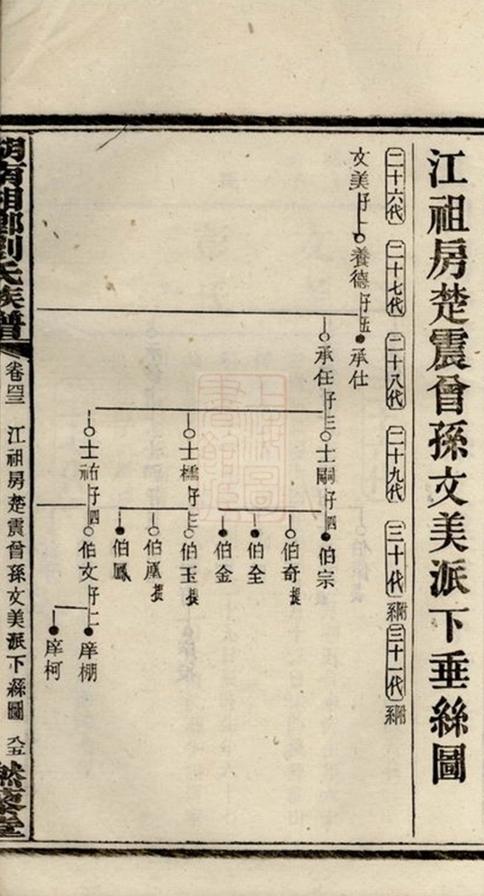 江祖房楚震曾孫文美派下垂絲圖
二十六代 二十七代 二十八代 二十九代 三十代 附系 三十一代 附系
文美 子一 養德 子五 承仕
承任 子三 士嗣 子四 伯宗
伯奇
伯全
伯金
士檽 子三 伯玉
伯鳳
士祐 子四 伯文 子二 庠棚
庠柯
湖南湘鄉劉氏族譜
江祖房楚震曾孫文美派下絲圖
八五